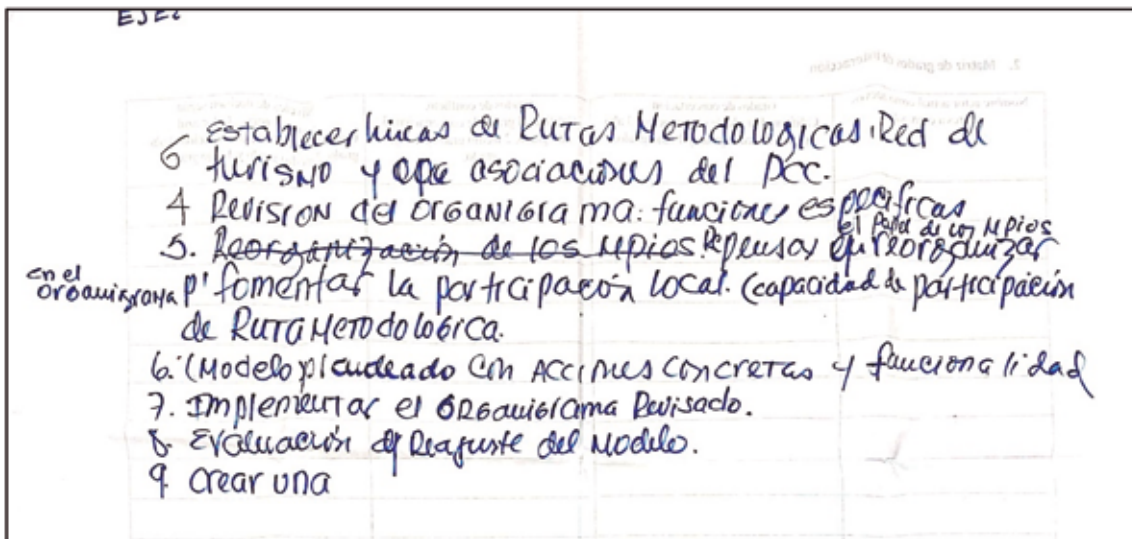 EJEC
2. Matriz de grados de interacción
6 Establecer líneas de Rutas Metodologicas. Red de
turismo y asociaciones del PCC.
4 Revision del organigrama: funciones especificas
el papel de los Mpios
5. Reorganización de los Mpios. Repensar en reorganizar
en el organigrama p' fomentar la participación local. (capacidad de participación
de Ruta Metodologica.
6. (Modelo planteado con acciones concretas y funcionalidad
7. Implementar el organigrama Revisado.
8. Evaluación y Reajuste del Modelo.
9 crear una